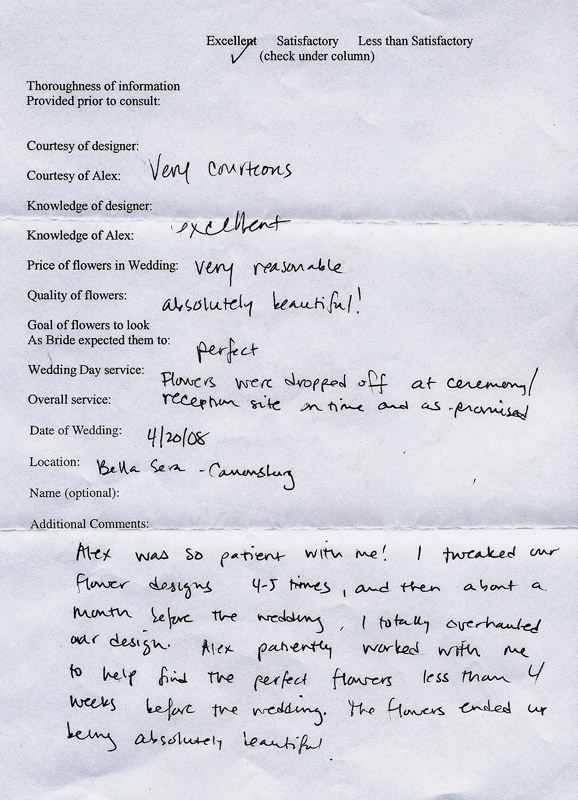 Excellent Satisfactory Less than Satisfactory
✓ (check under column)
Thoroughness of information
Provided prior to consult:
Courtesy of designer:
Courtesy of Alex: Very courteous
Knowledge of designer:
Knowledge of Alex: excellent
Price of flowers in Wedding: very reasonable
Quality of flowers: absolutely beautiful!
Goal of flowers to look
As Bride expected them to: perfect
Wedding Day service: Flowers were dropped off at ceremony/
Overall service: reception site on time and as promised
Date of Wedding: 4/20/08
Location: Bella Sera - Canonsburg
Name (optional):
Additional Comments:
Alex was so patient with me! I tweaked our
flower designs 4-5 times, and then about a
month before the wedding, I totally overhauled
our design. Alex patiently worked with me
to help find the perfect flowers less than 4
weeks before the wedding. The flowers ended up
being absolutely beautiful.